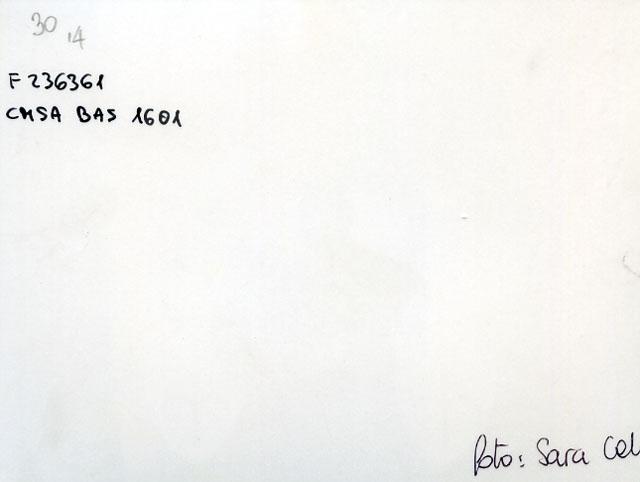 30 14
F 236361
CMSA BAS 1601
foto: Sara